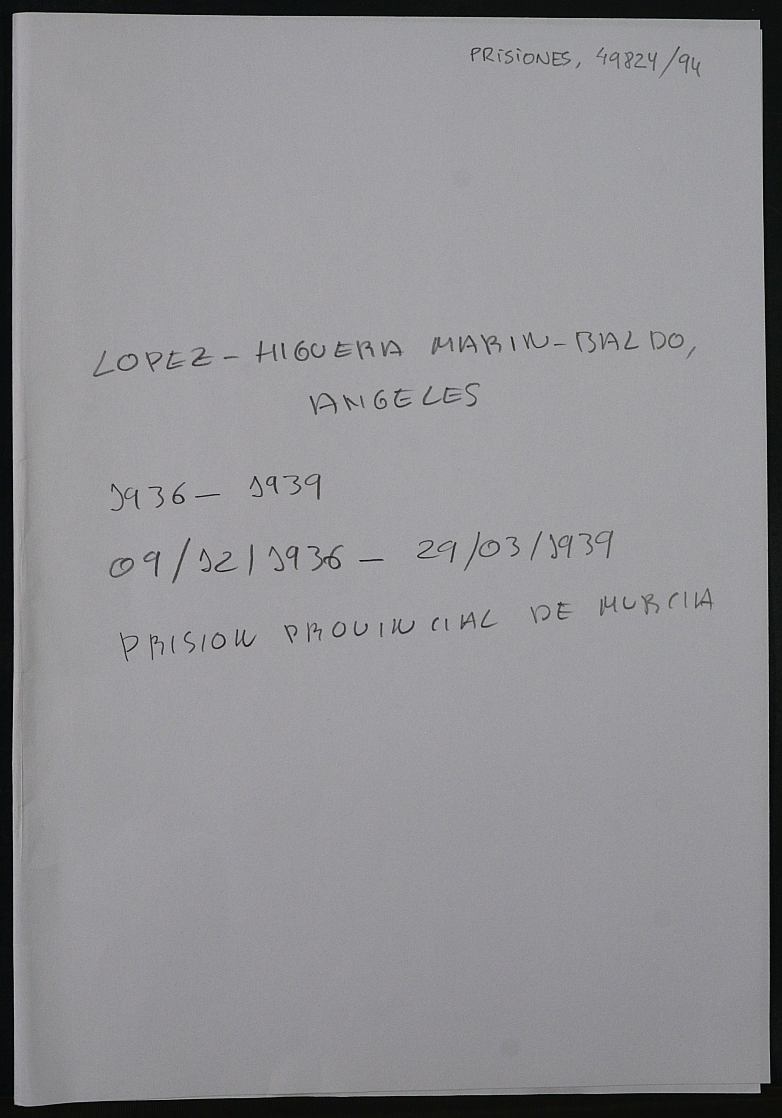 PRISIONES, 49824/94
LOPEZ-HIGUERA MARIN-BALDO,
ANGELES
1936 - 1939
09/12/1936 - 29/03/1939
PRISION PROVINCIAL DE MURCIA